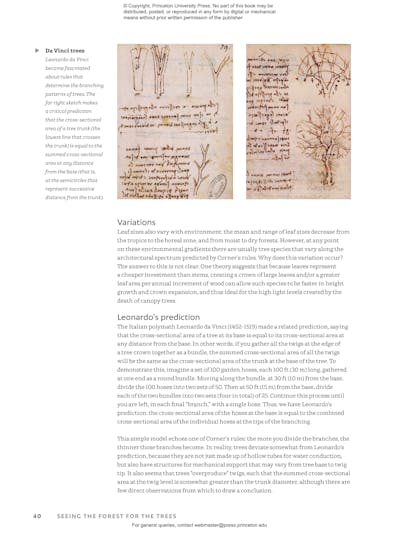 © Copyright, Princeton University Press. No part of this book may be
distributed, posted, or reproduced in any form by digital or mechanical
means without prior written permission of the publisher
Da Vinci trees
Leonardo da Vinci
became fascinated
about rules that
determine the branching
patterns of trees. The
far right sketch makes
a critical prediction
that the cross-sectional
area of a tree trunk (the
lowest line that crosses
the trunk) is equal to the
summed cross-sectional
area at any distance
from the base (that is,
at the semicircles that
represent successive
distance from the trunk).
Variations
Leaf sizes also vary with environment: the mean and range of leaf sizes decrease from
the tropics to the boreal zone, and from moist to dry forests. However, at any point
on these environmental gradients there are usually tree species that vary along the
architectural spectrum predicted by Corner's rules. Why does this variation occur?
The answer to this is not clear. One theory suggests that because leaves represent
a cheaper investment than stems, creating a crown of large leaves and/or a greater
leaf area per annual increment of wood can allow such species to be faster in height
growth and crown expansion, and thus ideal for the high light levels created by the
death of canopy trees.
Leonardo's prediction
The Italian polymath Leonardo da Vinci (1452–1519) made a related prediction, saying
that the cross-sectional area of a tree at its base is equal to its cross-sectional area at
any distance from the base. In other words, if you gather all the twigs at the edge of
a tree crown together as a bundle, the summed cross-sectional area of all the twigs
will be the same as the cross-sectional area of the trunk at the base of the tree. To
demonstrate this, imagine a set of 100 garden hoses, each 100 ft (30 m) long, gathered
at one end as a round bundle. Moving along the bundle, at 30 ft (10 m) from the base,
divide the 100 hoses into two sets of 50. Then at 50 ft (15 m) from the base, divide
each of the two bundles into two sets (four in total) of 25. Continue this process until
you are left, in each final "branch," with a single hose. Thus, we have Leonardo's
prediction: the cross-sectional area of the hoses at the base is equal to the combined
cross-sectional area of the individual hoses at the tips of the branching.
This simple model echoes one of Corner's rules: the more you divide the branches, the
thinner those branches become. In reality, trees deviate somewhat from Leonardo's
prediction, because they are not just made up of hollow tubes for water conduction,
but also have structures for mechanical support that may vary from tree base to twig
tip. It also seems that trees "overproduce" twigs, such that the summed cross-sectional
area at the twig level is somewhat greater than the trunk diameter, although there are
few direct observations from which to draw a conclusion.
40 SEEING THE FOREST FOR THE TREES
For general queries, contact webmaster@press.princeton.edu